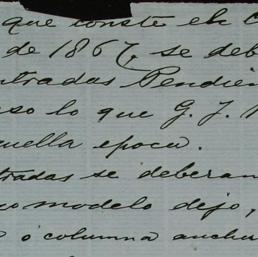 que conste el C
de 1867, se deb
ntradas Pendie
so lo que G. J.
quella epoca.
tradas se deberan
o modelo dejo,
o columna anchu